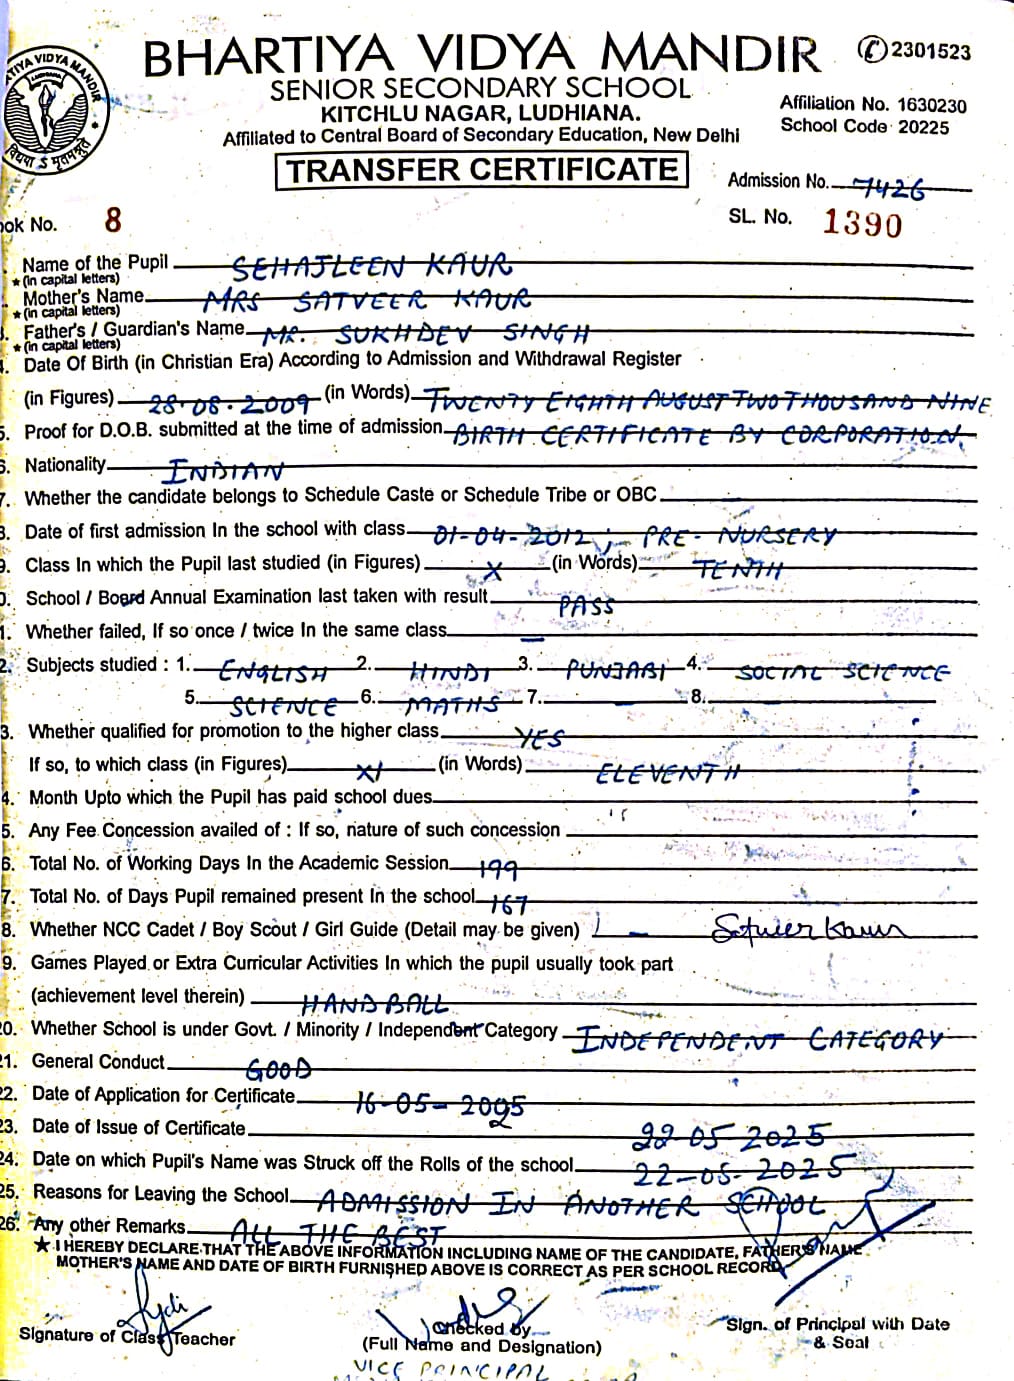 BHARTIYA VIDYA MANDIR
✆2301523
SENIOR SECONDARY SCHOOL
KITCHLU NAGAR, LUDHIANA.
Affiliated to Central Board of Secondary Education, New Delhi
Affiliation No. 1630230
School Code 20225
TRANSFER CERTIFICATE
Admission No. 7426
ok No. 8
SL. No. 1390
Name of the Pupil SEHAJLEEN KAUR
★(in capital letters)
Mother's Name MRS SATVEER KAUR
★(in capital letters)
Father's / Guardian's Name MR. SUKHDEV SINGH
★(in capital letters)
Date Of Birth (in Christian Era) According to Admission and Withdrawal Register
(in Figures) 28.08.2009 (in Words) TWENTY EIGHTH AUGUST TWO THOUSAND NINE
5. Proof for D.O.B. submitted at the time of admission BIRTH CERTIFICATE BY CORPORATION.
6. Nationality INDIAN
7. Whether the candidate belongs to Schedule Caste or Schedule Tribe or OBC —
8. Date of first admission In the school with class 01-04-2012; PRE-NURSERY
9. Class In which the Pupil last studied (in Figures) X (in Words) TENTH
0. School / Board Annual Examination last taken with result PASS
1. Whether failed, If so once / twice In the same class —
2. Subjects studied : 1. ENGLISH 2. HINDI 3. PUNJABI 4. SOCIAL SCIENCE
5. SCIENCE 6. MATHS 7. 8.
3. Whether qualified for promotion to the higher class YES
If so, to which class (in Figures) XI (in Words) ELEVENTH
4. Month Upto which the Pupil has paid school dues
5. Any Fee Concession availed of : If so, nature of such concession
6. Total No. of Working Days In the Academic Session 199
7. Total No. of Days Pupil remained present In the school 167
8. Whether NCC Cadet / Boy Scout / Girl Guide (Detail may be given) — Satveer Kaur
9. Games Played or Extra Curricular Activities In which the pupil usually took part
(achievement level therein) HANDBALL
20. Whether School is under Govt. / Minority / Independent Category INDEPENDENT CATEGORY
21. General Conduct GOOD
22. Date of Application for Certificate 16-05-2025
23. Date of Issue of Certificate 22-05-2025
24. Date on which Pupil's Name was Struck off the Rolls of the school 22-05-2025
25. Reasons for Leaving the School ADMISSION IN ANOTHER SCHOOL
26. Any other Remarks ALL THE BEST
★ I HEREBY DECLARE THAT THE ABOVE INFORMATION INCLUDING NAME OF THE CANDIDATE, FATHER'S NAME
MOTHER'S NAME AND DATE OF BIRTH FURNISHED ABOVE IS CORRECT AS PER SCHOOL RECORD
Signature of Class Teacher
Checked by
(Full Name and Designation)
VICE PRINCIPAL
Sign. of Principal with Date
& Seal